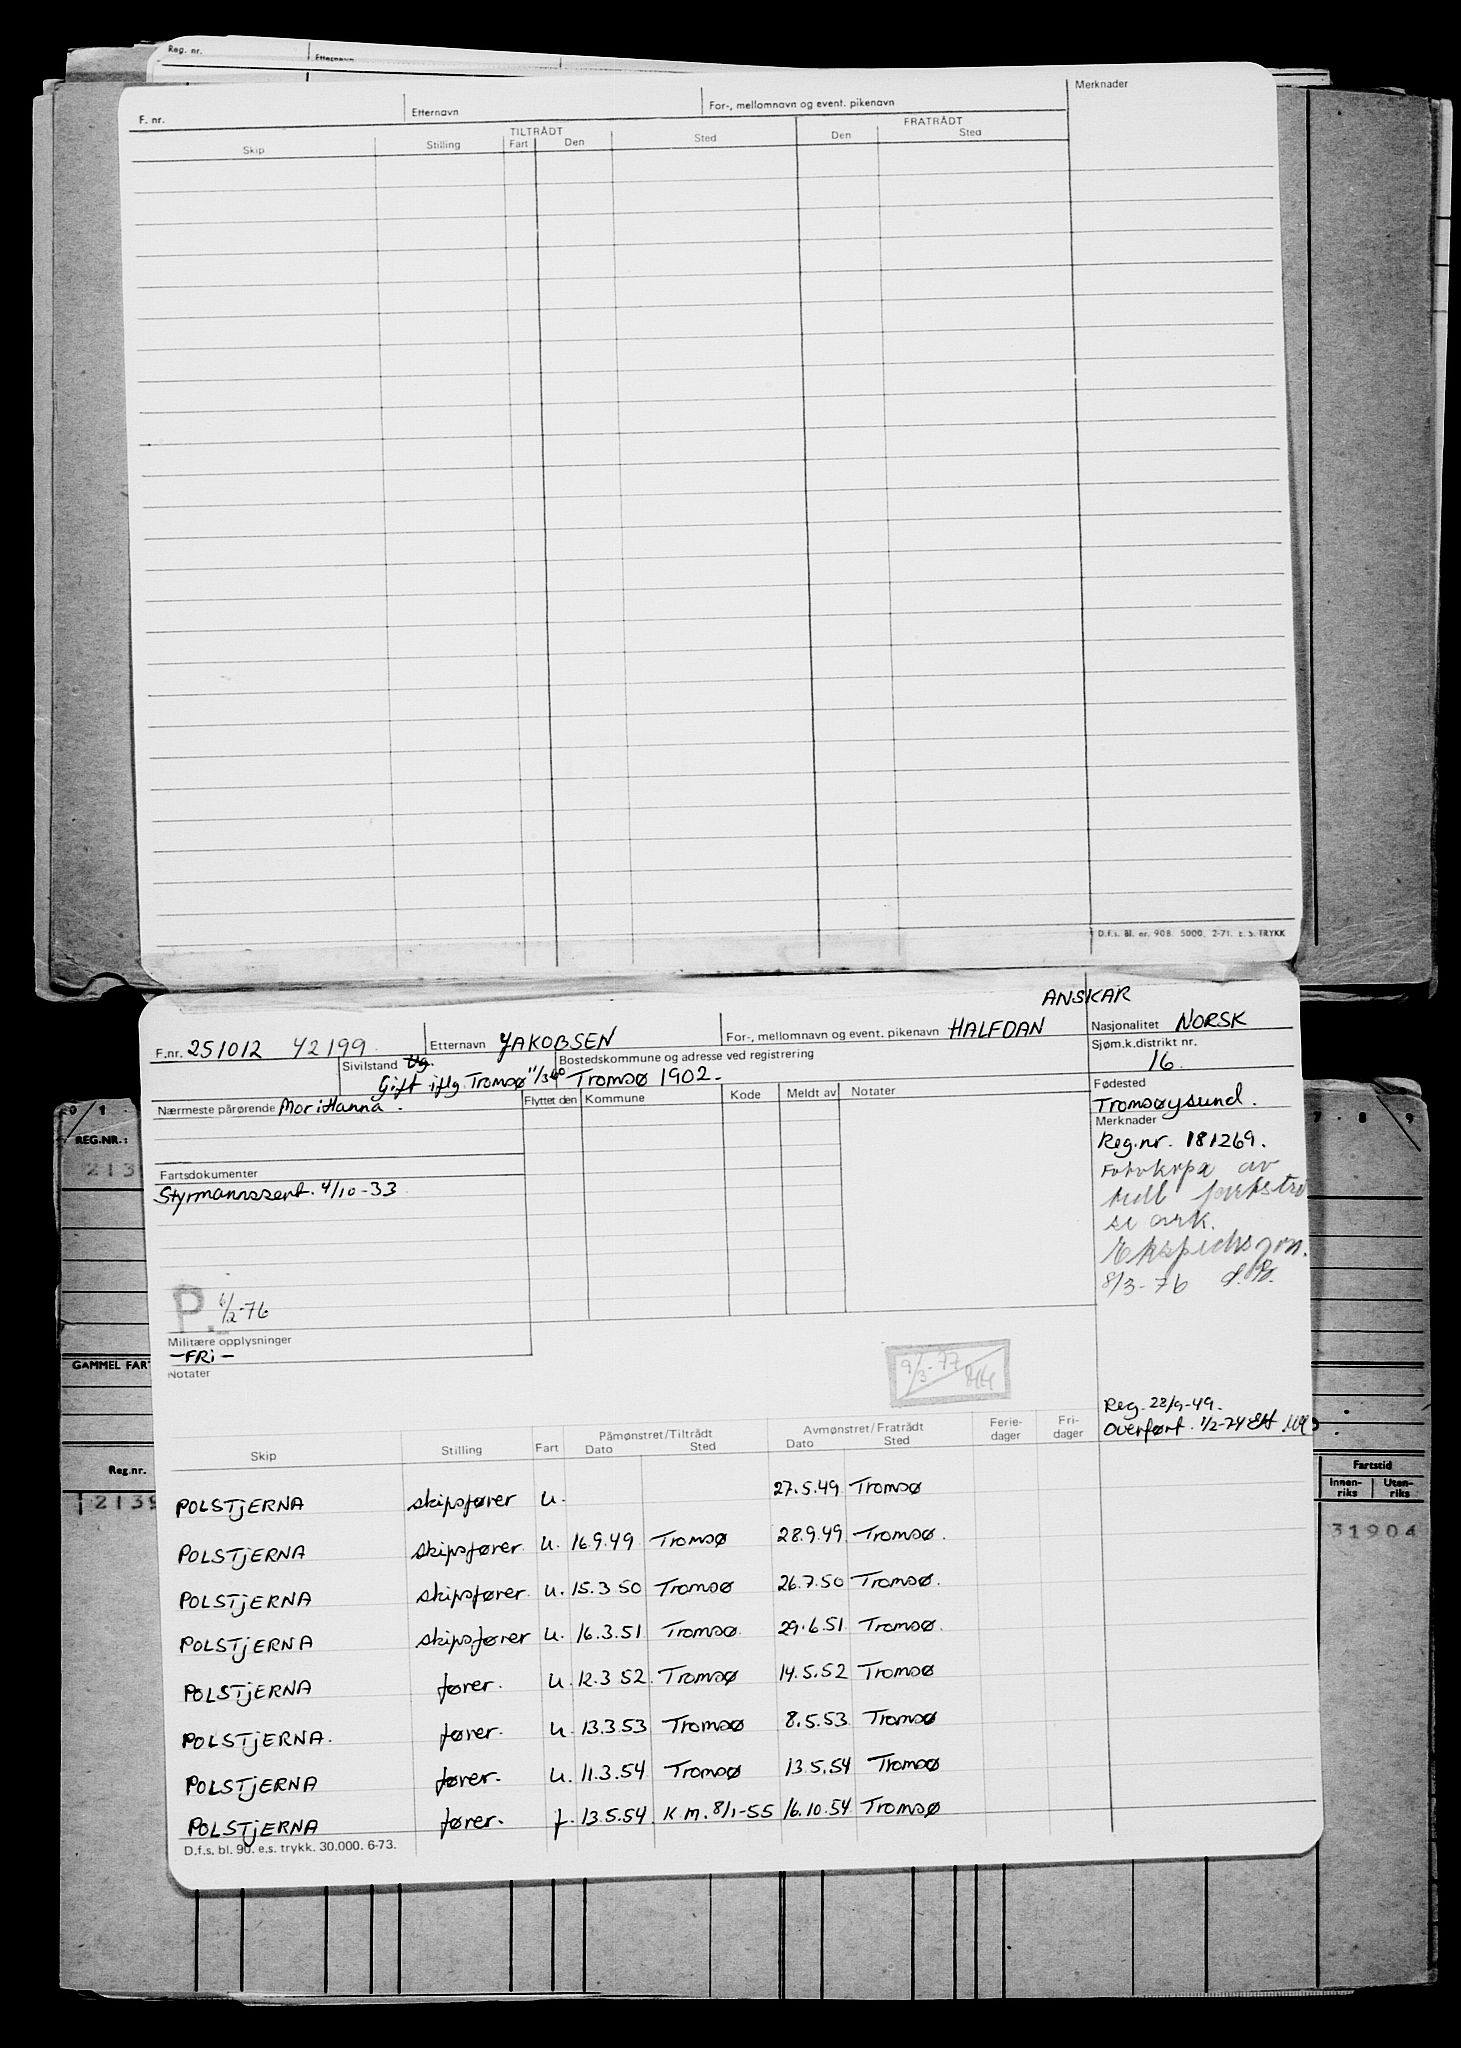 Reg. nr.
Etternavn
F. nr.
Etternavn
For-, mellomnavn og event. pikenavn
Merknader
TILTRÅDT
FRATRÅDT
Skip
Stilling
Fart
Den
Sted
Den
Sted
D.f.s. Bl. nr. 908. 5000. 2-71. E. S. TRYKK
ANSKAR
F.nr. 251012 42199.
Etternavn JAKOBSEN
For-, mellomnavn og event. pikenavn HALFDAN
Nasjonalitet NORSK
Sivilstand Ug.
Gift iflg Tromsø 11/3-60
Bostedskommune og adresse ved registrering
Tromsø 1902.
Sjøm.k.distrikt nr.
16.
Nærmeste pårørende Mor: Hanna.
Flyttet den
Kommune
Kode
Meldt av
Notater
Fødested
Tromsøysund.
Merknader
Reg.nr. 181269.
av
se ark.
8/3-76
Fartsdokumenter
Styrmannssert. 4/10-33
P. 6/2-76
Militære opplysninger
-FRi-
Notater
9/3-77
Reg. 23/9-49.
Overført. 1/2-74
Skip
Stilling
Fart
Påmønstret/Tiltrådt
Dato
Sted
Avmønstret/Fratrådt
Dato
Sted
Ferie-
dager
Fri-
dager
POLSTJERNA skipsfører u. 27.5.49 Tromsø
POLSTJERNA skipsfører. u. 16.9.49 Tromsø 28.9.49. Tromsø.
POLSTJERNA skipsfører. u. 15.3 50 Tromsø 26.7.50 Tromsø.
POLSTJERNA skipsfører u. 16.3.51 Tromsø. 29.6.51 Tromsø.
POLSTJERNA fører. u. 12.3 52. Tromsø 14.5.52 Tromsø
POLSTJERNA. fører. u. 13.3.53 Tromsø 8.5.53 Tromsø
POLSTJERNA fører. u. 11.3.54 Tromsø 13.5.54 Tromsø
POLSTJERNA fører. f. 13.5.54. K.M. 8/1-55 16.10.54 Tromsø
D.f.s. bl. 90. e.s. trykk. 30.000. 6-73.
0 / 1
REG.NR.:
213
GAMMEL FART
Reg.nr.
2139
7 8 9
Fartstid
Innen-
riks
Uten-
riks
31904